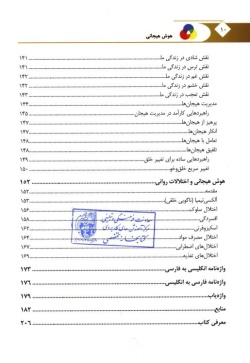 ۱۰
هوش هیجانی
نقش شادی در زندگی ما ۱۳۱
نقش ترس در زندگی ما ۱۳۱
نقش غم در زندگی ما ۱۳۲
نقش خشم در زندگی ما ۱۳۲
نقش تعجب در زندگی ما ۱۳۳
مدیریت هیجان‌ها ۱۳۴
راهبردهایی کارآمد در مدیریت هیجان ۱۳۵
پرهیز از هیجان‌ها
انکار هیجان‌ها ۱۳۷
تعامل با هیجان‌ها
تلفیق هیجان‌ها
راهبردهایی ساده برای تغییر خلق ۱۳۹
تغییر سریع خلق‌وخو ۱۵۰
هوش هیجانی و اختلالات روانی ۱۵۲
مقدمه
الکسی‌تیمیا (ناگویی خلقی) ۱۵۳
اختلال سلوک
افسردگی
اسکیزوفرنی
اختلال مصرف مواد
اختلال‌های اضطرابی ۱۶۹
اختلال‌های تغذیه
واژه‌نامه انگلیسی به فارسی ۱۷۳
واژه‌نامه فارسی به انگلیسی ۱۷۶
واژه‌یاب ۱۷۹
منابع ۱۸۲
معرفی کتاب ۲۰۶